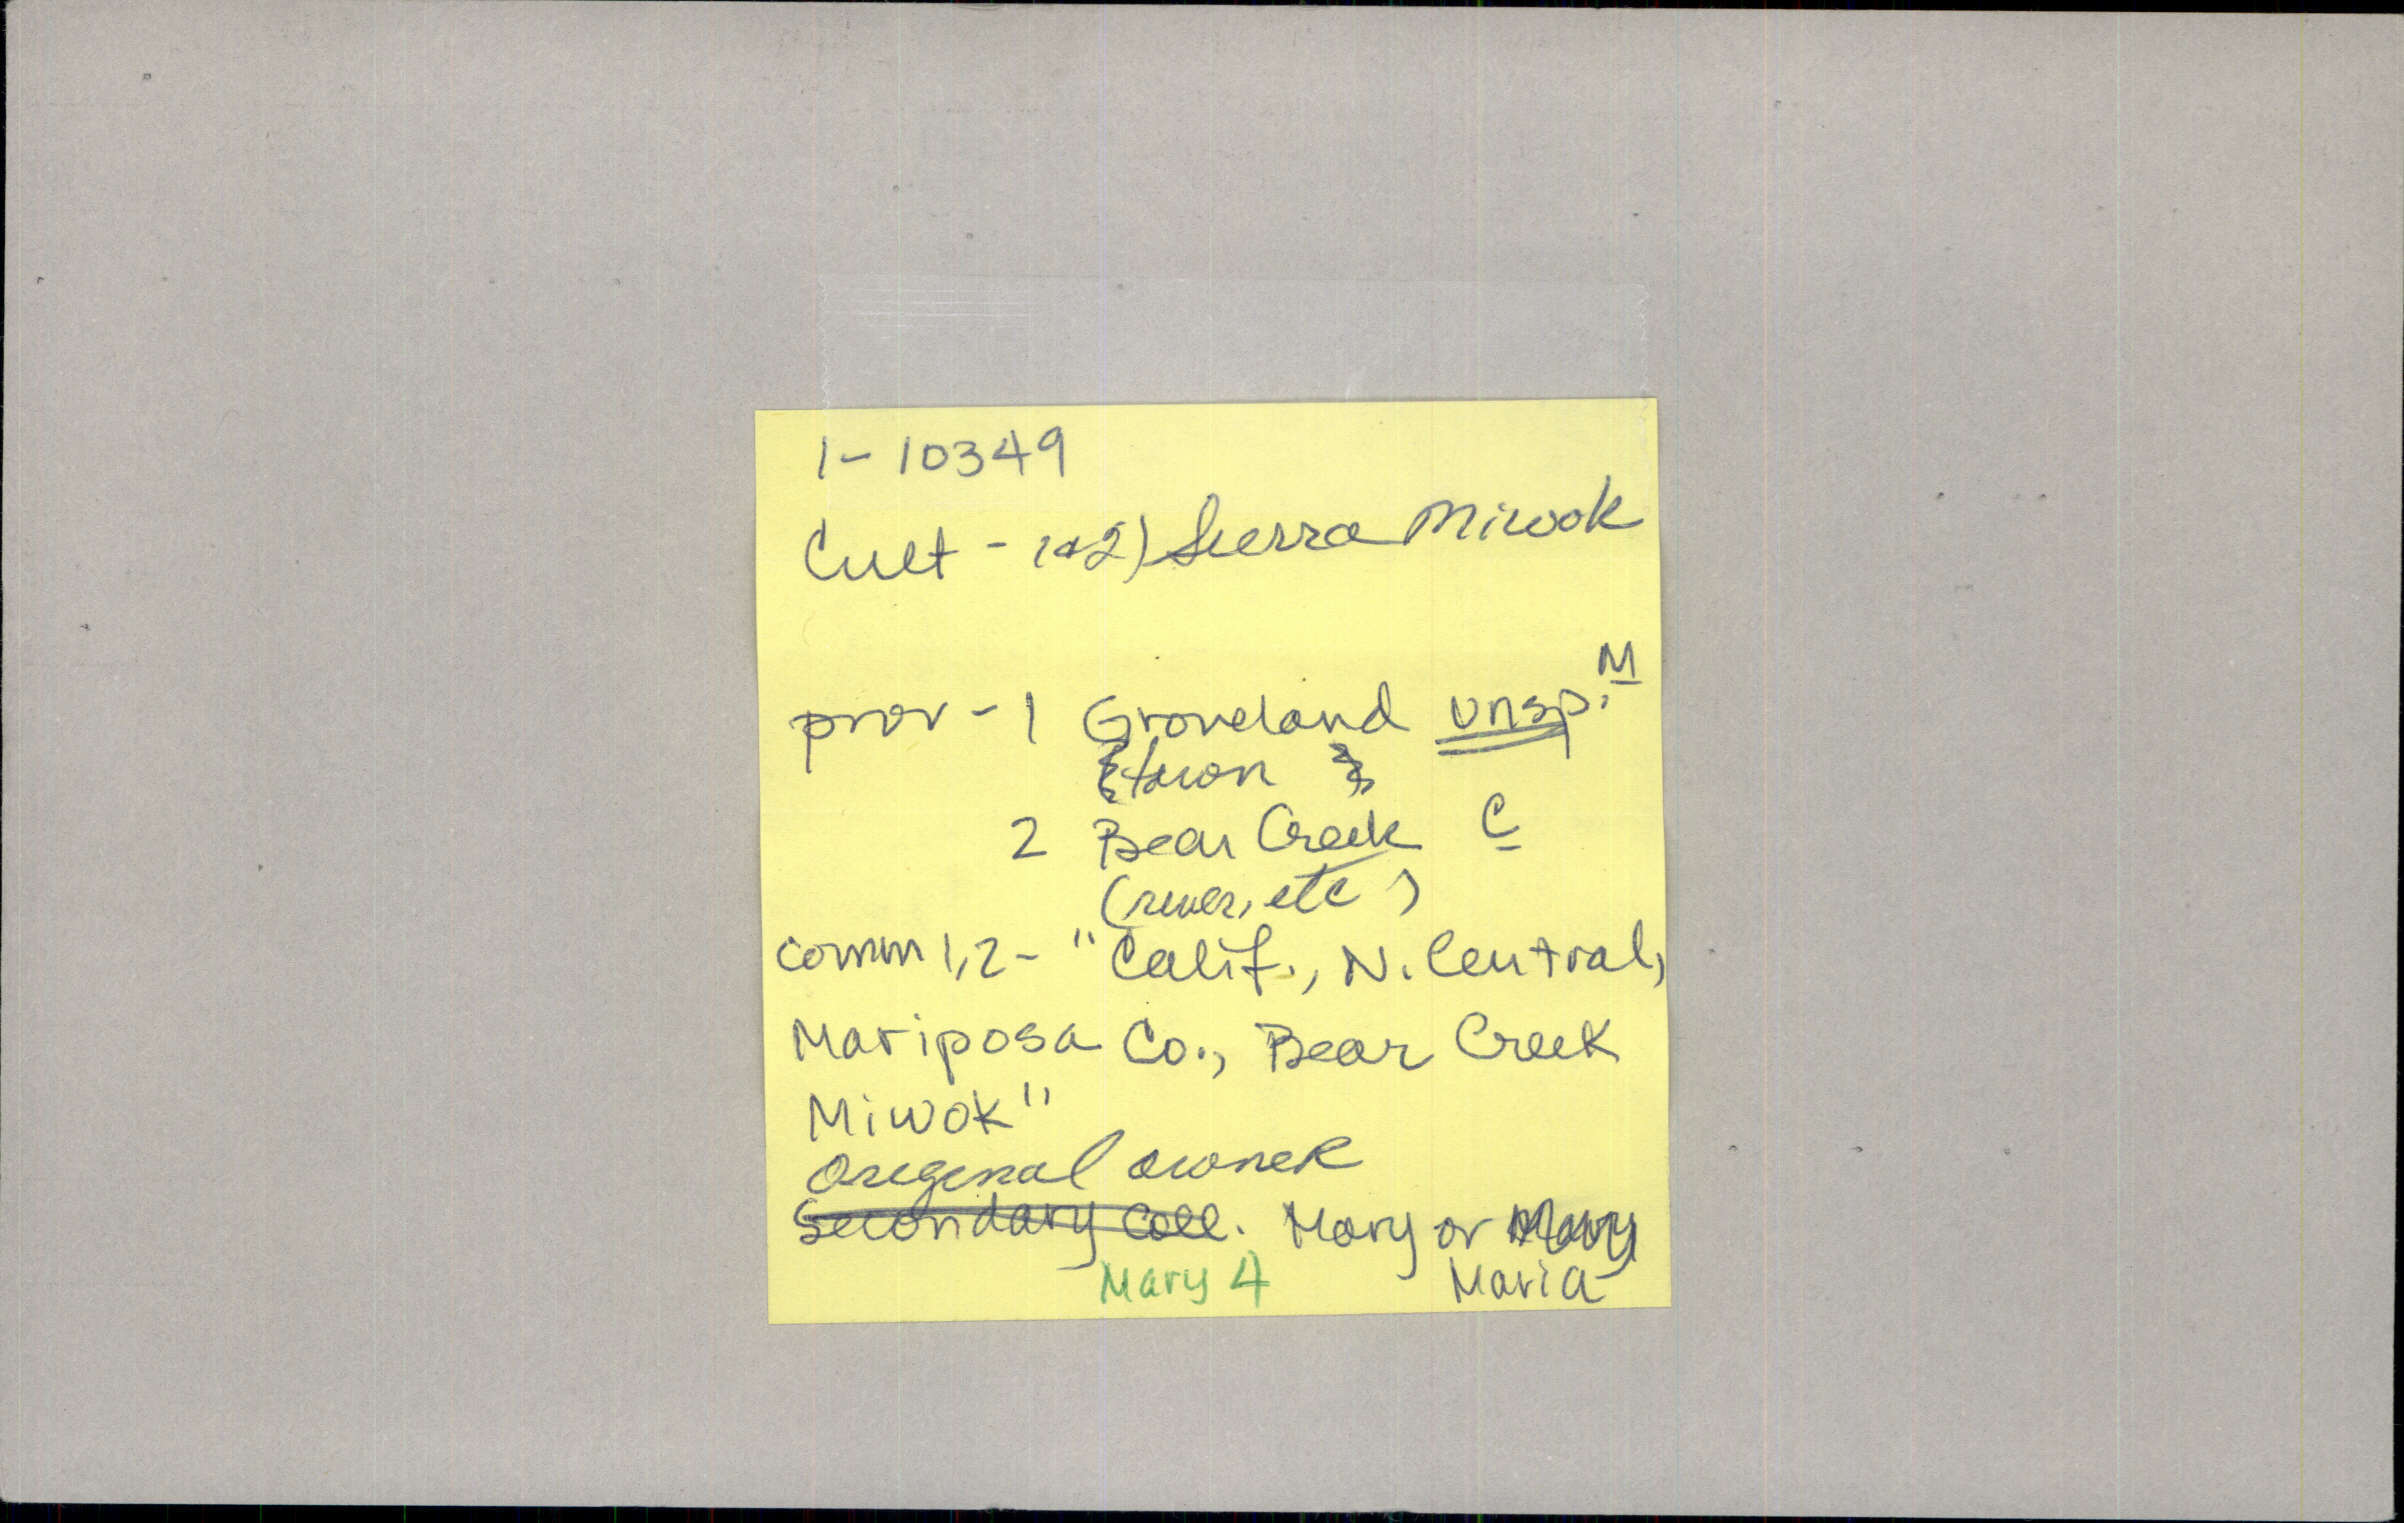 1-10349
Cult - 1+2) Sierra Miwok
M
prov - 1 Groveland unsp.
{town }
2 Bear Creek C
(river, etc)
comm 1,2- "Calif., N. Central,
Mariposa Co., Bear Creek
Miwok"
Original owner
Secondary Coll. Mary or Mary
Mary 4 Maria